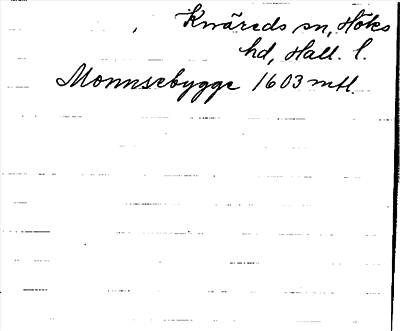 Knäreds sn, Höks
hd, Hall. l.
Monnsebygge 1603 mtl.